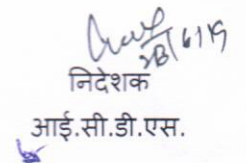 28/6/19
निदेशक
आई.सी.डी.एस.